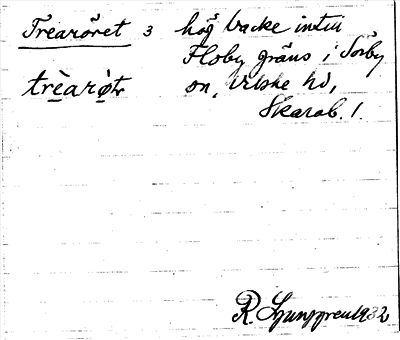 Trearöret 3 hög backe intill
Floby gräns i Sörby
trèarø̀tr sn, Vilske hd,
Skarab. l.
R. Ljunggren 1932